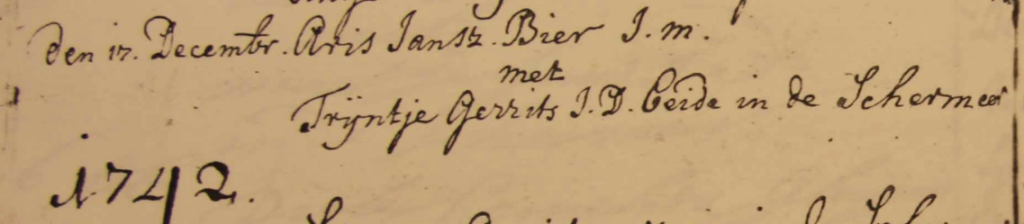 den 17. Decembr. Aris Jansz. Bier J. m.
met
Trijntje Gerrits J. D. beide in de Schermeer
1742.